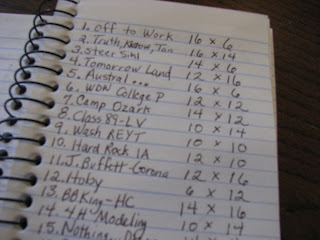 1. Off to Work 16 x 6
2. Truth, Know, Tan 16 x 14
3. Steer Skl 14 x 6
4. Tomorrow Land 12 x 16
5. Austral... 16 x 6
6. WDW College P 12 x 12
7. Camp Ozark 14 x 12
8. Class 89-LV 10 x 14
9. Wash REYT 10 x 10
10. Hard Rock IA 12 x 10
11. J. Buffett-Corona 12 x 16
12. Hoby 6 x 12
13. BB King-HC 14 x 16
14. 4H Modeling 10 x 14
15. Nothing...